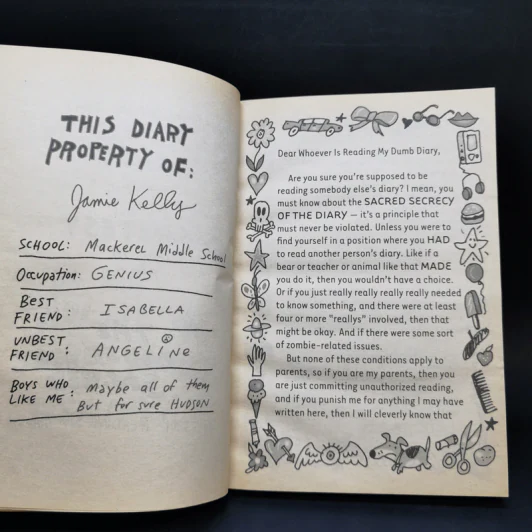 THIS DIARY
PROPERTY OF:
Jamie Kelly
SCHOOL: Mackerel Middle School
Occupation: GENIUS
BEST
FRIEND: ISABELLA
UNBEST
FRIEND: ANGELiNe
BOYS WHO
LIKE ME: Maybe all of them
But for sure HUDSON
Dear Whoever Is Reading My Dumb Diary,
Are you sure you're supposed to be
reading somebody else's diary? I mean, you
must know about the SACRED SECRECY
OF THE DIARY — it's a principle that
must never be violated. Unless you were to
find yourself in a position where you HAD
to read another person's diary. Like if a
bear or teacher or animal like that MADE
you do it, then you wouldn't have a choice.
Or if you just really really really really needed
to know something, and there were at least
four or more "reallys" involved, then that
might be okay. And if there were some sort
of zombie-related issues.
But none of these conditions apply to
parents, so if you are my parents, then you
are just committing unauthorized reading,
and if you punish me for anything I may have
written here, then I will cleverly know that